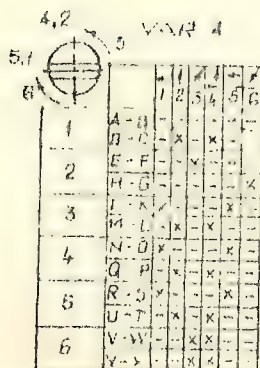 4,2
3
VAR 4
5,1
6
1 2 3 4 5 6
1 A - B - - - - - -
D - C - x - x - -
2 E - F - - x - - -
H - G - - - - - x
3 I - K - - - x -
M - L - x - x - -
4 N - O x - - - - -
Q - P - x - x - -
5 R - S x - - - x -
U - T - x - x - -
6 V - W - - x x - -
- - x x - -